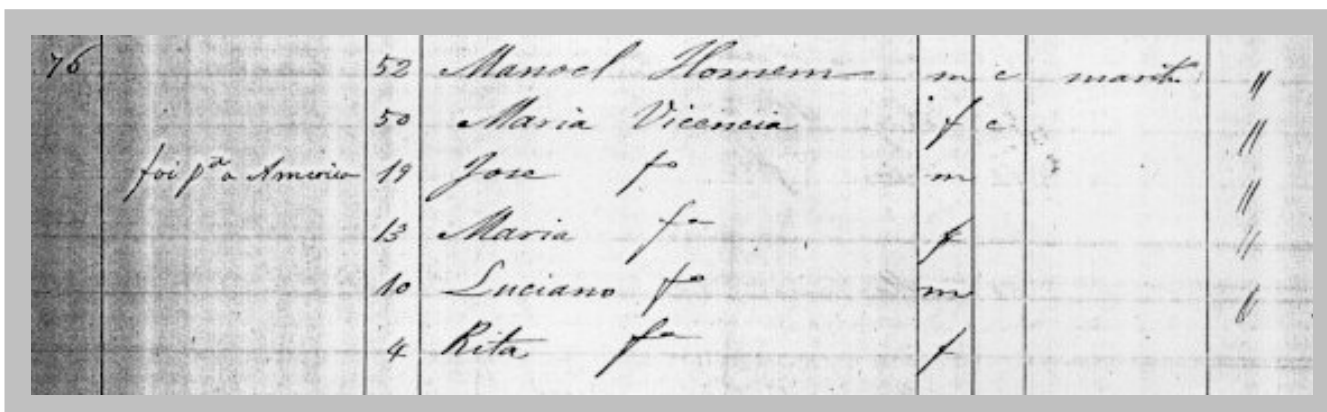 76 52 Manoel Homem m c marit. "
50 Maria Vicencia f c "
foi pª a America 19 Jose fº m "
13 Maria fª f "
10 Luciano fº m "
4 Rita fª f